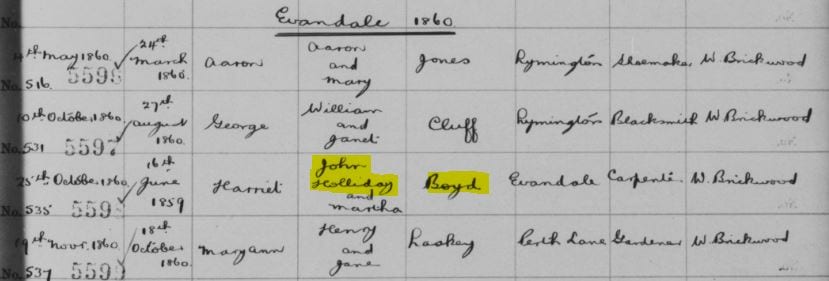 No. Evandale 1860
14th May 1860. 24th March 1860. Aaron Aaron and Mary Jones Lymington Shoemaker W. Brickwood
No. 516. 5596
10th October, 1860. 27th August 1860. George William and Janet Cluff Lymington Blacksmith W. Brickwood
No. 531 5597
25th October, 1860 16th June 1859 Harriet John Holliday and Martha Boyd Evandale Carpenter W. Brickwood
No. 535 559
19th Novr. 1860. 18th October 1860. Mary Ann Henry and Jane Laskey Perth Lane Gardener W. Brickwood
No. 537 5599